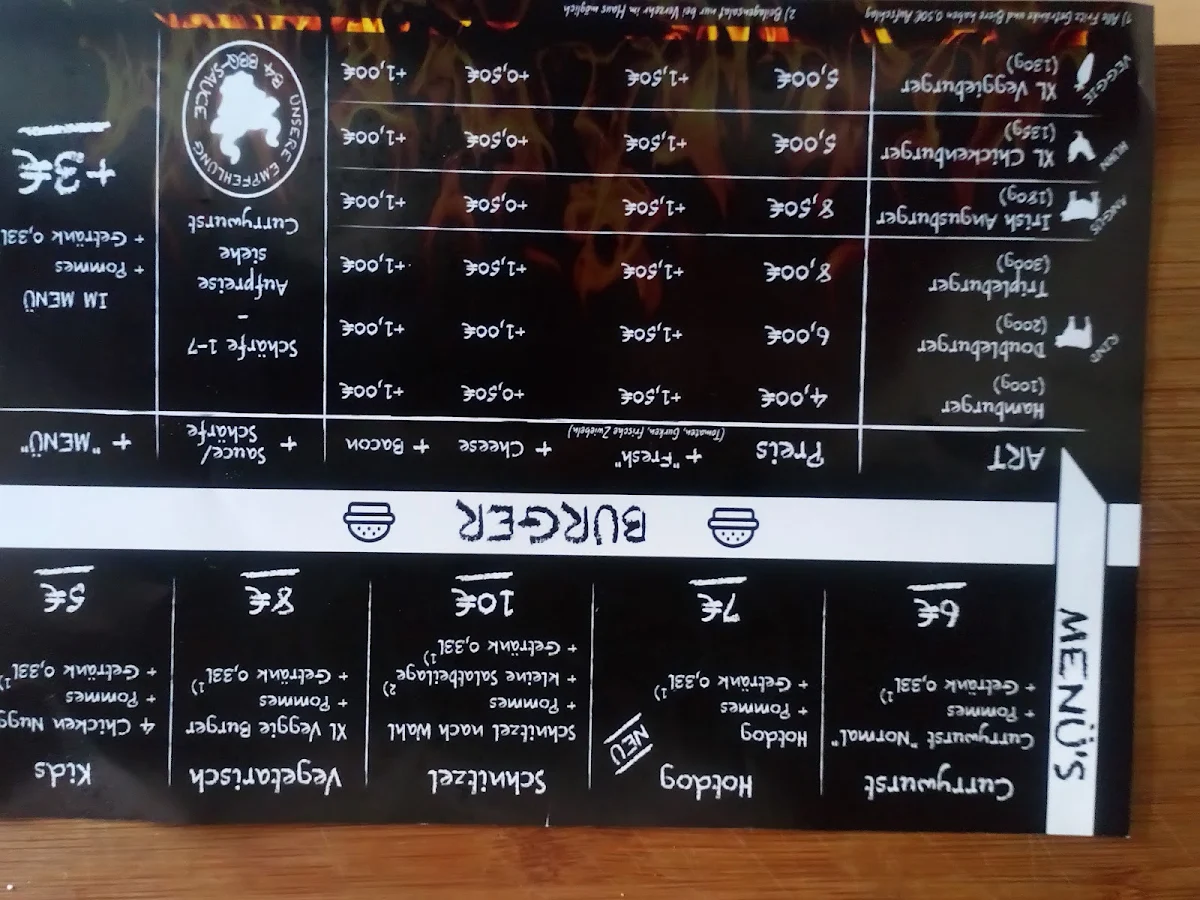 MENÜ'S
Currywurst
Currywurst "Normal"
+ Pommes
+ Getränk 0,33l 1)
6€
Hotdog
NEU
Hotdog
+ Pommes
+ Getränk 0,33l 1)
7€
Schnitzel
Schnitzel nach Wahl
+ Pommes
+ kleine Salatbeilage 2)
+ Getränk 0,33l 1)
10€
Vegetarisch
XL Veggie Burger
+ Pommes
+ Getränk 0,33l 1)
8€
Kids
4 Chicken Nugg
+ Pommes
+ Getränk 0,33l 1)
5€
BURGER
ART Preis + "Fresh" + Cheese + Bacon + Sauce/ Schärfe + "MENÜ"
(Tomaten, Gurken, frische Zwiebeln)
RIND
Hamburger 4,00€ +1,50€ +0,50€ +1,00€
(100g)
Doubleburger 6,00€ +1,50€ +1,00€ +1,00€
(200g)
Tripleburger 8,00€ +1,50€ +1,50€ +1,00€
(300g)
ANGUS
Irish Angusburger 8,50€ +1,50€ +0,50€ +1,00€
(180g)
HUHN
XL Chickenburger 5,00€ +1,50€ +0,50€ +1,00€
(135g)
VEGGIE
XL Veggieburger 5,00€ +1,50€ +0,50€ +1,00€
(130g)
Schärfe 1-7
-
Aufpreise
siehe
Currywurst
UNSERE EMPFEHLUNG
B4 BBQ-SAUCE
IM MENÜ
+ Pommes
+ Getränk 0,33l
+3€
1) Alle Fritz Getränke und Biere haben 0,50€ Aufschlag
2) Beilagensalat nur bei Verzehr im Haus möglich